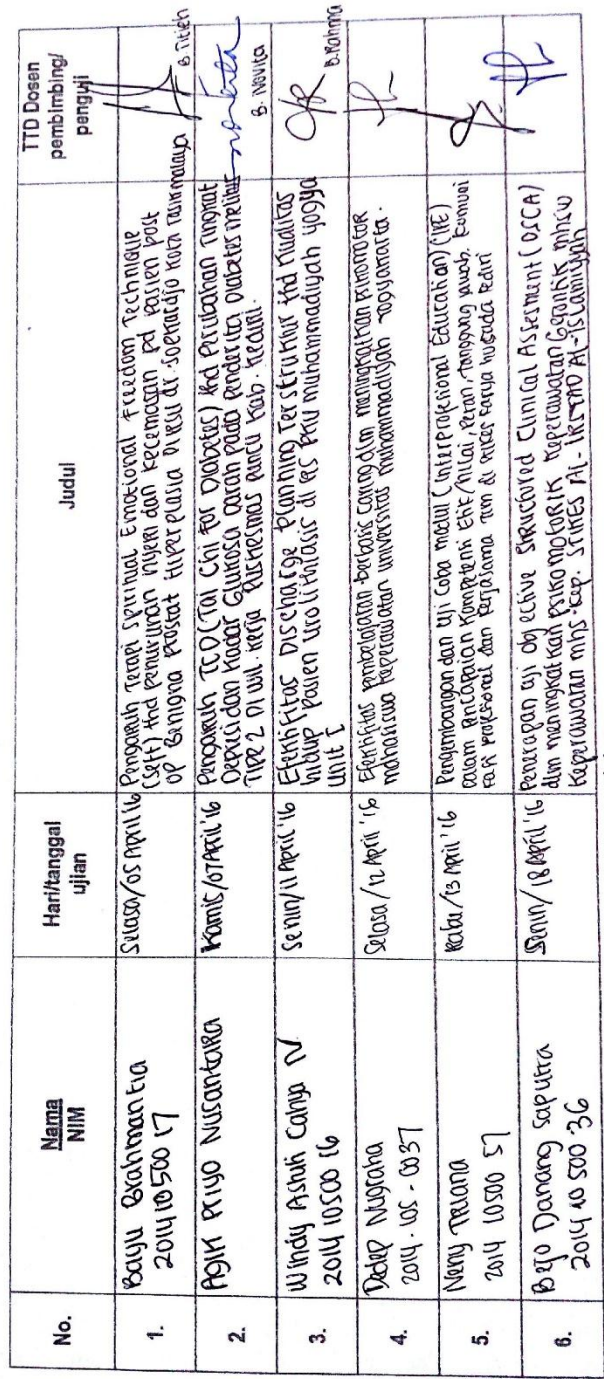 No.
Nama
NIM
Hari/tanggal
ujian
Judul
TTD Dosen
pembimbing/
penguji
1.
Bayu Brahmantia
20141050017
Selasa/05 April 16
Pengaruh Terapi Spiritual Emotional Freedom Technique
(Seft) thd penurunan nyeri dan kecemasan pd pasien post
op Benigna Prostat Hiperplasia Di RSU dr. Soekardjo Kota Tasikmalaya
B. Titieh
2.
Agik Priyo Nusantara
Kamis/07 April '16
Pengaruh TCD (Tai Chi For Diabetes) thd Perubahan Tingkat
Depresi dan Kadar Glukosa darah pada Penderita Diabetes melitus
Tipe 2 Di wil. kerja Puskesmas Puncu Kab. Kediri.
B. Novita
3.
Windy Astuti Cahya N
20141050016
Senin/11 April '16
Efektifitas Discharge Planning Terstruktur thd Kualitas
hidup pasien Urolithiasis di RS PKU muhammadiyah yogya
Unit I
B. Rahma
4.
Dedep Nugraha
2014.105.0037
Selasa/12 April '16
Efektifitas pembelajaran berbasis caring dlm meningkatkan psikomotor
mahasiswa keperawatan universitas muhammadiyah Yogyakarta.
5.
Neny Triana
20141050057
Rabu/13 April '16
Pengembangan dan uji Coba modul (Interprofesional Education) (IPE)
dalam Pencapaian Kompetensi Etik/nilai, peran/tanggung jawab, komuni
kasi profesional dan kerjasama Tim di stikes karya husada kediri
6.
Bejo Danang Saputra
20141050036
Senin/18 April '16
Penerapan uji objective Structured Clinical Assesment (OSCA)
dlm meningkatkan Psikomotorik keperawatan Gerontik mhsw
Keperawatan mhs kep. STIKES AL-IRSYAD AL-Islamiyyah